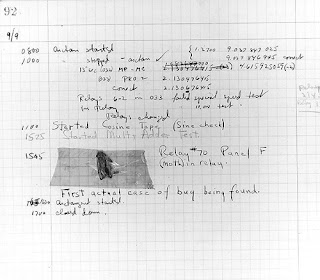 92
9/9
0800 Antan started
1000 " stopped - antan ✓ { 1.2700 9.037 847 025
13"uc (032) MP-MC 2.130476415 9.037 846 995 correct
033 PRO 2 2.130476415
correct 2.130676415
Relays 6-2 in 033 failed special speed test
in relay 11.00 test.
Relays changed
1100 Started Cosine Tape (Sine check)
1525 Started Mult+Adder Test.
1545 Relay #70 Panel F
(moth) in relay.
First actual case of bug being found.
antangent started.
1700 closed down.